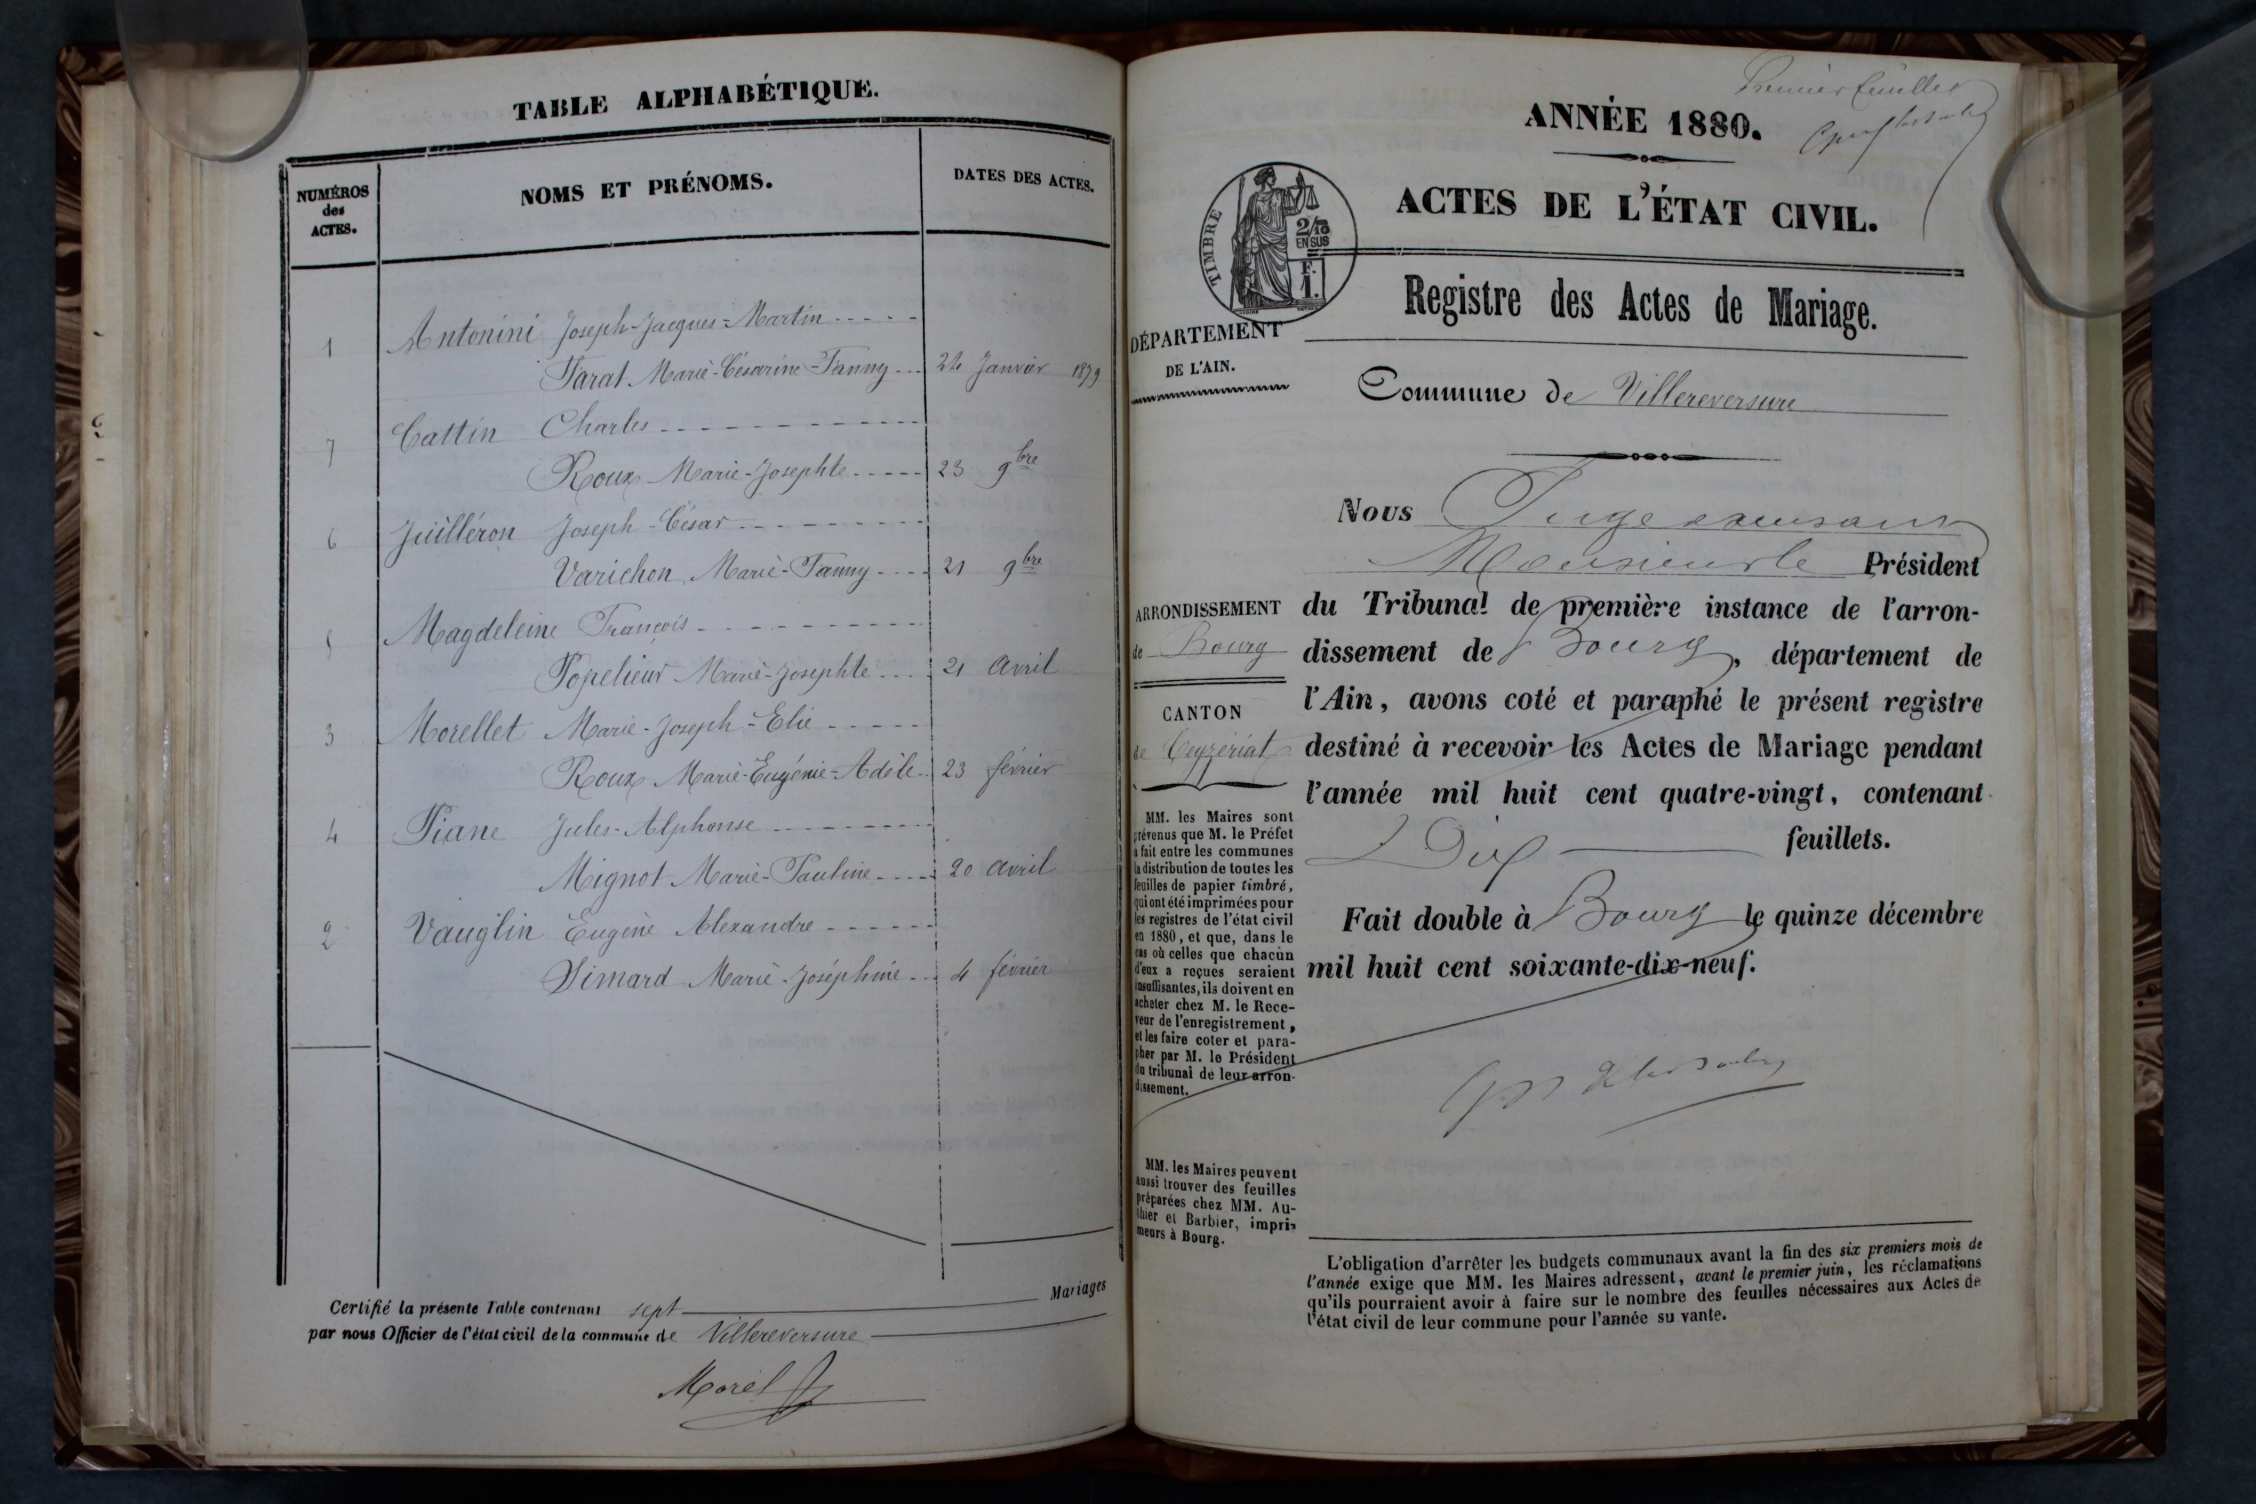 TABLE ALPHABÉTIQUE.
NUMÉROS
des
ACTES.
NOMS ET PRÉNOMS.
DATES DES ACTES.
1 Antonini Joseph-Jacques=Martin
Marie-Césarine-Fanny 24 Janvier 1879
7 Cattin Charles
Roux Marie-Josephte 23 9bre
6 Juilléron Joseph-César
Varichon Marie-Fanny 21 9bre
5 Magdeleine François
Popelieur Marie-Josephte 21 Avril
3 Morellet Marie-Joseph-Elie
Roux Marie-Eugénie=Adèle 23 février
4 Piane Jules-Alphonse
Mignot Marie-Pauline 20 Avril
2 Vauglin Eugène Alexandre
Simard Marie-Joséphine 4 février
Certifié la présente Table contenant sept Mariages
par nous Officier de l'état civil de la commune de Villereversure
Morel
Premier feuillet
ANNÉE 1880.
ACTES DE L'ÉTAT CIVIL.
TIMBRE
2/10
EN SUS
F.
1.
Registre des Actes de Mariage.
DÉPARTEMENT
DE L'AIN.
Commune de Villereversure
Nous Juge
Monsieur le Président
du Tribunal de première instance de l'arron-
dissement de Bourg, département de
l'Ain, avons coté et paraphé le présent registre
destiné à recevoir les Actes de Mariage pendant
l'année mil huit cent quatre-vingt, contenant
Dix feuillets.
Fait double à Bourg le quinze décembre
mil huit cent soixante-dix-neuf.
ARRONDISSEMENT
de Bourg
CANTON
de Ceyzériat
MM. les Maires sont
prévenus que M. le Préfet
a fait entre les communes
la distribution de toutes les
feuilles de papier timbré,
qui ont été imprimées pour
les registres de l'état civil
en 1880, et que, dans le
cas où celles que chacun
d'eux a reçues seraient
insuffisantes, ils doivent en
acheter chez M. le Rece-
veur de l'enregistrement,
et les faire coter et para-
pher par M. le Président
du tribunal de leur arron-
dissement.
MM. les Maires peuvent
aussi trouver des feuilles
préparées chez MM. Au-
thier et Barbier, impri-
meurs à Bourg.
L'obligation d'arrêter les budgets communaux avant la fin des six premiers mois de
l'année exige que MM. les Maires adressent, avant le premier juin, les réclamations
qu'ils pourraient avoir à faire sur le nombre des feuilles nécessaires aux Actes de
l'état civil de leur commune pour l'année su vante.